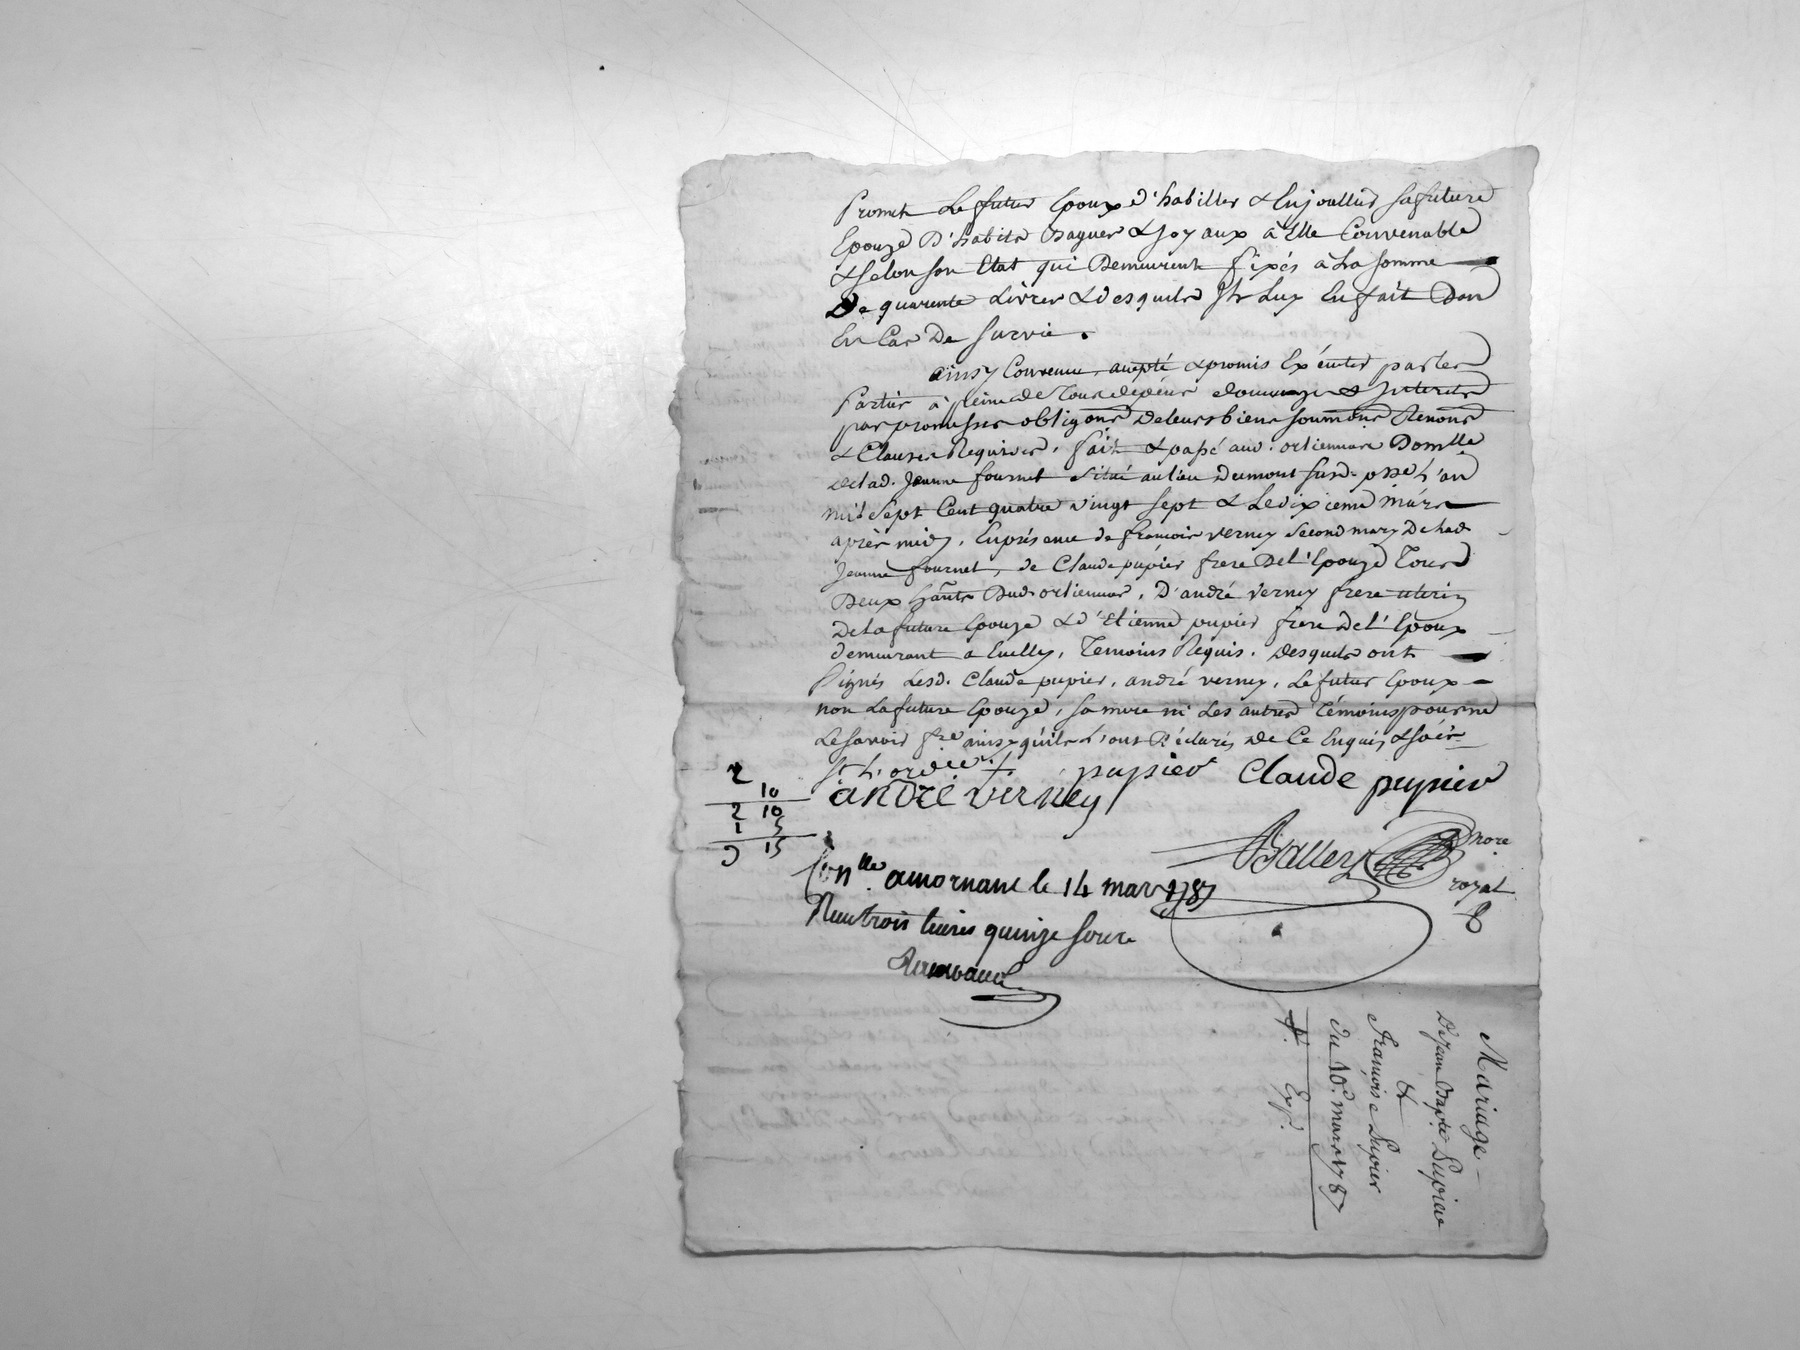 Promet Le futur Epoux d'habiller & Enjoaller sa future
Epouze D'habits Bagues & Joyaux à Elle Convenable
& selon son Etat qui Demeurent fixés à La somme
De quarente Livres & desquels Il Luy En fait Don
En Cas De survie.
ainsy Convenu, accepté & promis Exécuter par les
Parties à peine de Tous dépens dommages & Interets
par promesses obligons de leurs biens soumons Renons
& Clauses Requises. fait & passé aud. ortiennas Domlle
de lad. Jeanne fournet situé au lieu Dumont susd. psse L'an
mil sept Cent quatre vingt sept & Le dixieme Mars
après midy, En présence de francois verney second mary De lad.
Jeanne fournet, de Claude pupier frere De L'Epouze Tous
Deux hants Dud. ortiennas, D'andré Verney frere uterin
De La future Epouze & d'Etienne pupier frere De L'Epoux
demeurant a Cuelly, Temoins Requis. Desquels ont
Signés Lesd. Claude pupier, andré verney, Le futur Epoux
non La future Epouze, sa mere ni Les autres Témoins pour ne
Le savoir fre ainsy qu'ils L'ont Déclarés de Ce Enquis & soir
st L'ordce.
pupier Claude pupier
andré verney
2
10
2 10
1 5
3 15
Balley nore
royal
Conlle a mornant le 14 mars 1787
Reçu trois livres quinze sous
Mariage
De Jean Bapte Pupier
&
Françoise Pupier
Du 10e mars 1787
Exp.